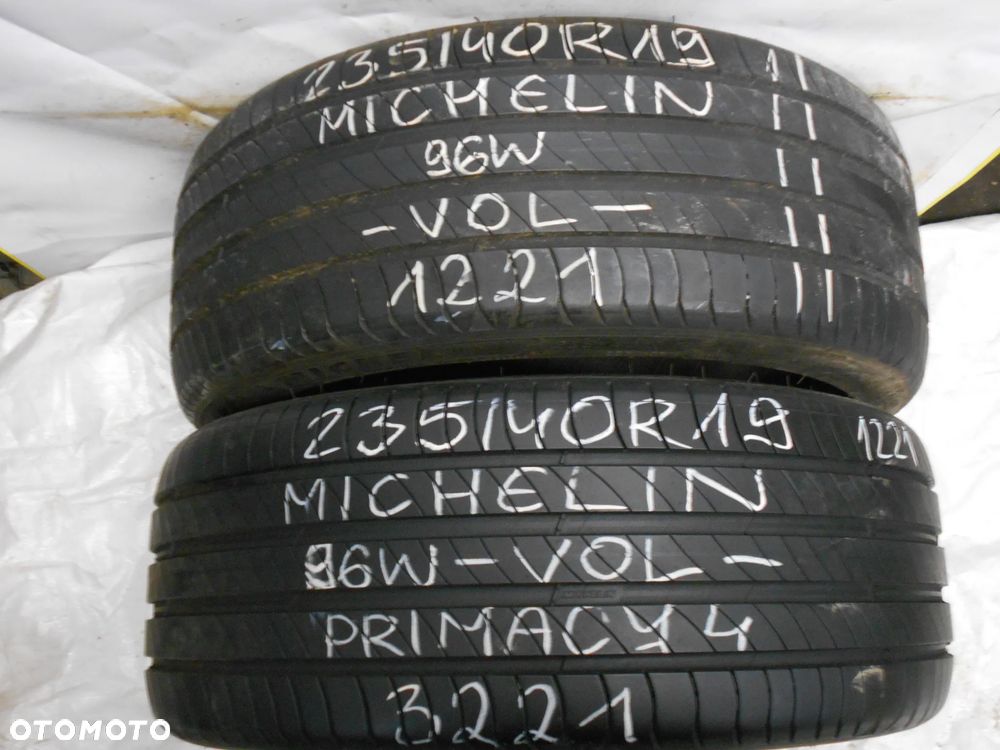 235/40R19 11
MICHELIN 11
96W 11
-VOL- 11
1221 11
235/40R19 1221
MICHELIN
96W-VOL-
PRIMACY 4
3221
OTOMOTO